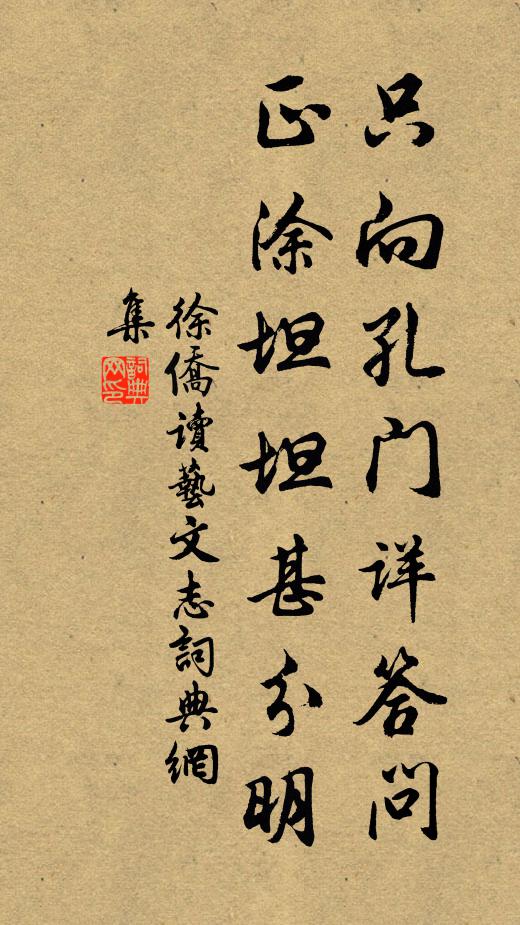 只向孔门详答问
正涂坦坦甚分明
徐僑讀藝文志詞典網
集
詞典网印